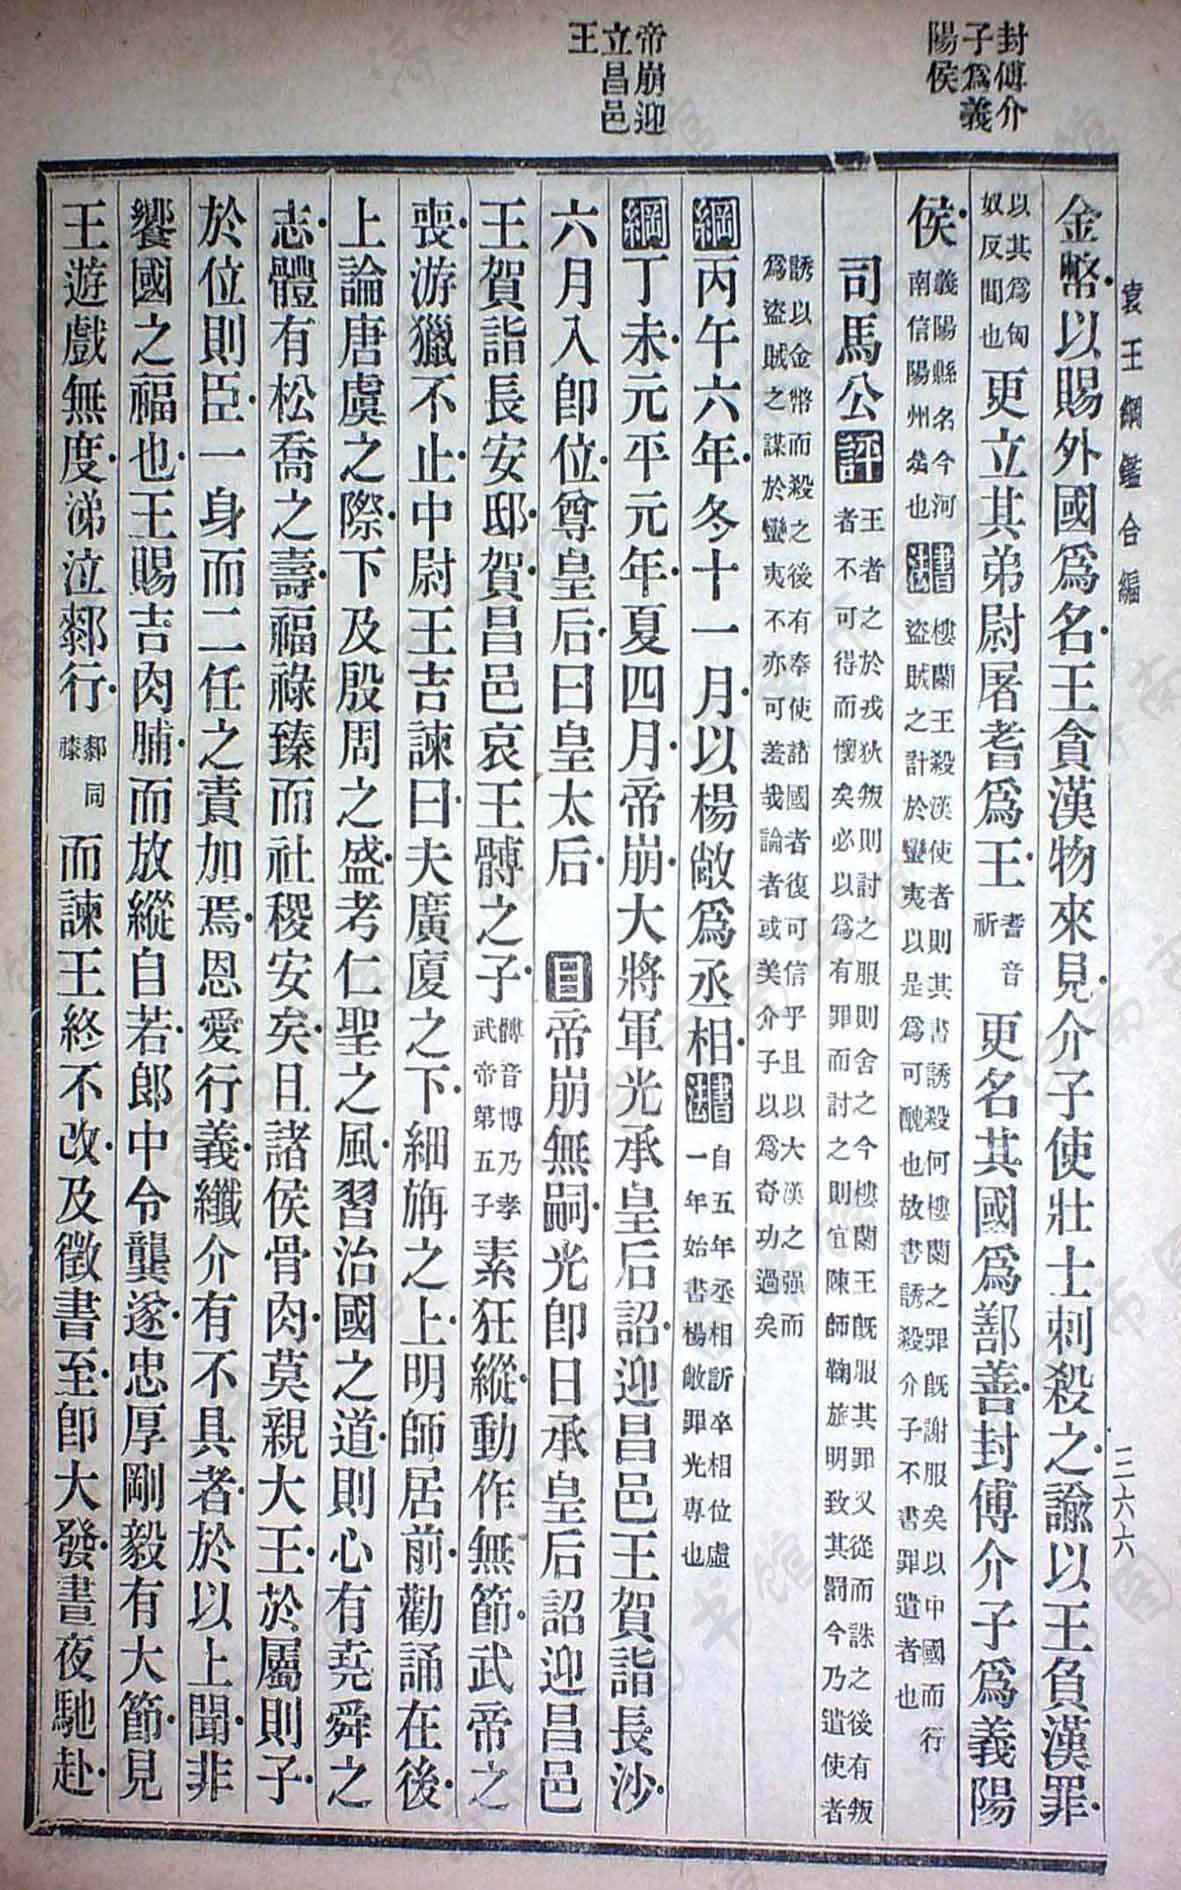 封傅介
子爲義
陽侯
帝崩迎
立昌邑
王
袁王綱鑑合編
三六六
金幣以賜外國爲名王貪漢物來見介子使壯士刺殺之諭以王負漢罪
以其爲匈
奴反間也
更立其弟尉屠耆爲王
耆音
祈
更名其國爲鄯善封傅介子爲義陽
侯
義陽縣名今河
南信陽州是也
書法
樓蘭王殺漢使者則其書誘殺何樓蘭之罪旣謝服矣以中國而行
盜賊之計於蠻夷以是爲可醜也故書誘殺介子不書罪遣者也
司馬公評
王者之於戎狄叛則討之服則舍之今樓蘭王旣服其罪又從而誅之後有叛
者不可得而懷矣必以爲有罪而討之則宜陳師鞠旅明致其罰今乃遣使者
誘以金幣而殺之後有奉使諸國者復可信乎且以大漢之强而
爲盜賊之謀於蠻夷不亦可羞哉論者或美介子以爲奇功過矣
綱丙午六年冬十一月以楊敞爲丞相
書法
自五年丞相訢卒相位虛
一年始書楊敞罪光專也
綱丁未元平元年夏四月帝崩大將軍光承皇后詔迎昌邑王賀詣長沙
六月入卽位尊皇后曰皇太后 目帝崩無嗣光卽日承皇后詔迎昌邑
王賀詣長安邸賀昌邑哀王髆之子
髆音博乃孝
武帝第五子
素狂縱動作無節武帝之
喪游獵不止中尉王吉諫曰夫廣廈之下細旃之上明師居前勸誦在後
上論唐虞之際下及殷周之盛考仁聖之風習治國之道則心有堯舜之
志體有松喬之壽福祿臻而社稷安矣且諸侯骨肉莫親大王於屬則子
於位則臣一身而二任之責加焉恩愛行義纖介有不具者於以上聞非
饗國之福也王賜吉肉脯而放縱自若郎中令龔遂忠厚剛毅有大節見
王遊戲無度涕泣郄行
郄同
膝
而諫王終不改及徵書至卽大發書晝夜馳赴